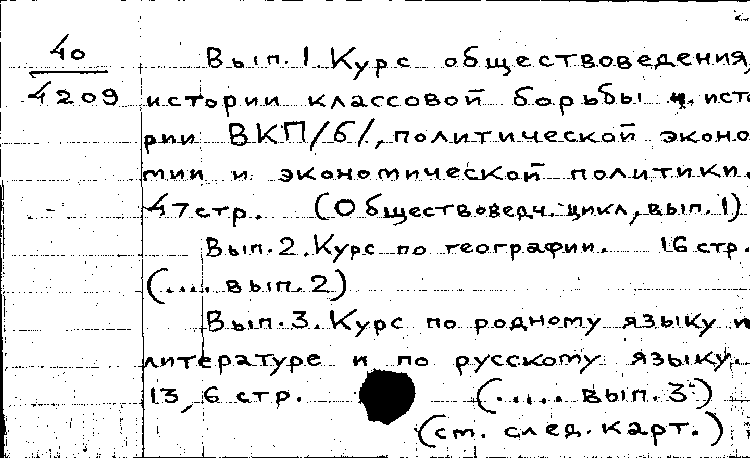 40
4209
Вып. 1. Курс обществоведения,
истории классовой борьбы и исто
рии ВКП/б/, политической эконо
мии и экономической политики.
47 стр. (Обществоведч. цикл, вып. 1)
Вып. 2. Курс по географии. 16 стр.
(.... вып. 2)
Вып. 3. Курс по родному языку и
литературе и по русскому языку.
13, 6 стр. (..... вып. 3)
(см. след. карт.)